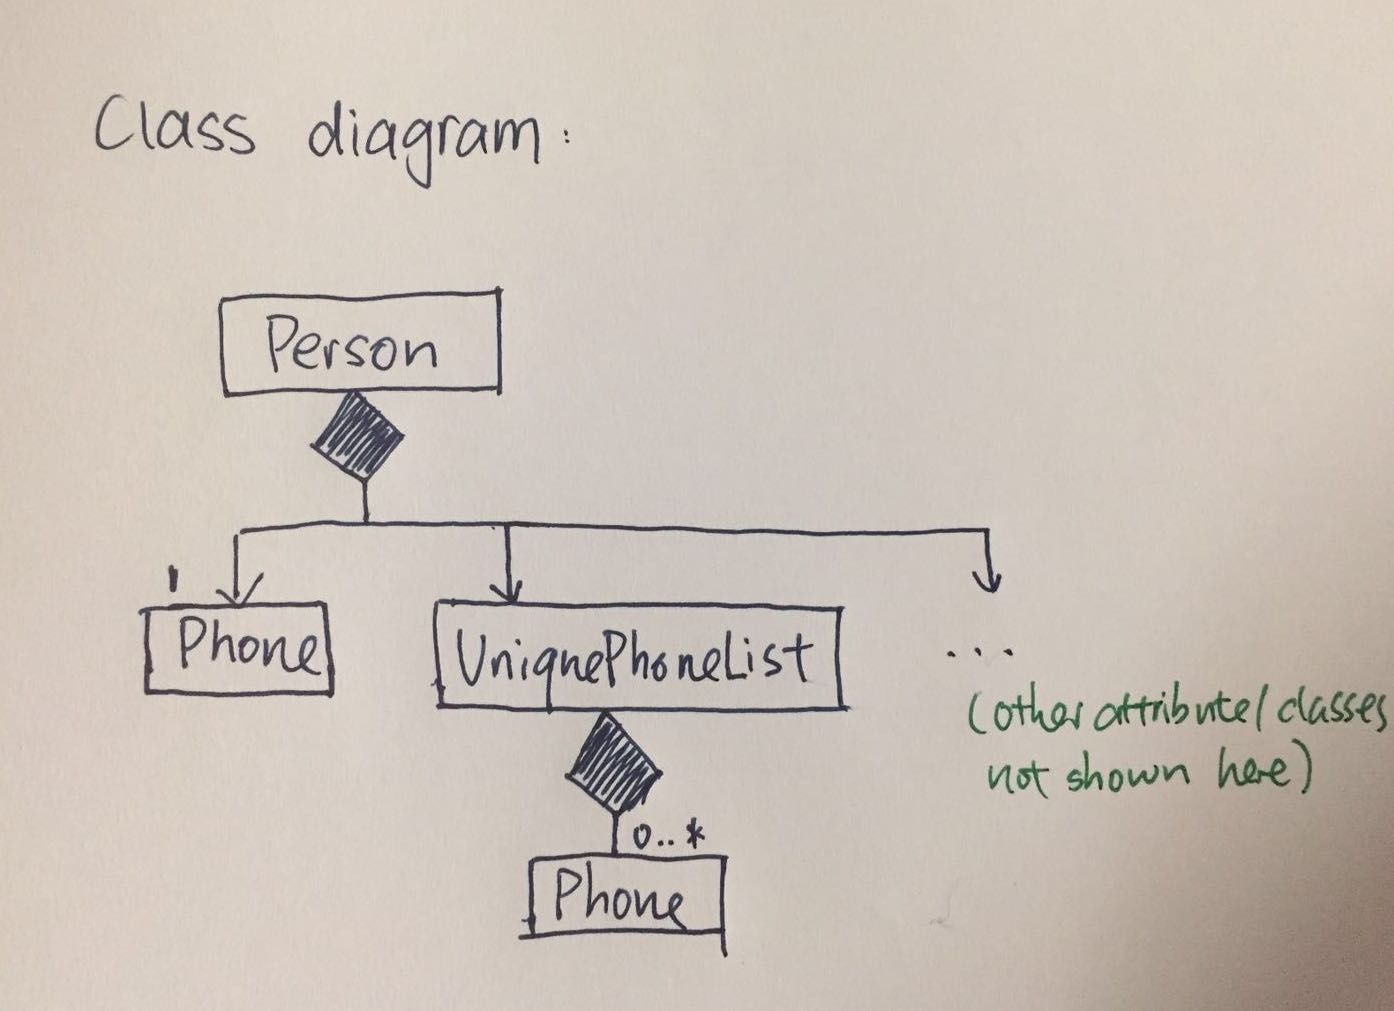 Class diagram:
Person
1
Phone
UniquePhoneList
...
(other attribute/classes
not shown here)
0..*
Phone